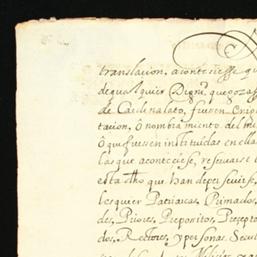 translacion, acontecisse qu
de qualquier Dignd. que gozass
de Cardenalato, fuesen Enig
tacion, ó nombramiento del mi
ó que fuesen instituidas en elia
las que acontecisse, reseruais e
esta dho que han de per seuise,
lesquier Patriarcas, Primados,
des, Priores, Prepositos, Precepto
dos, Rectores, y personas Secul